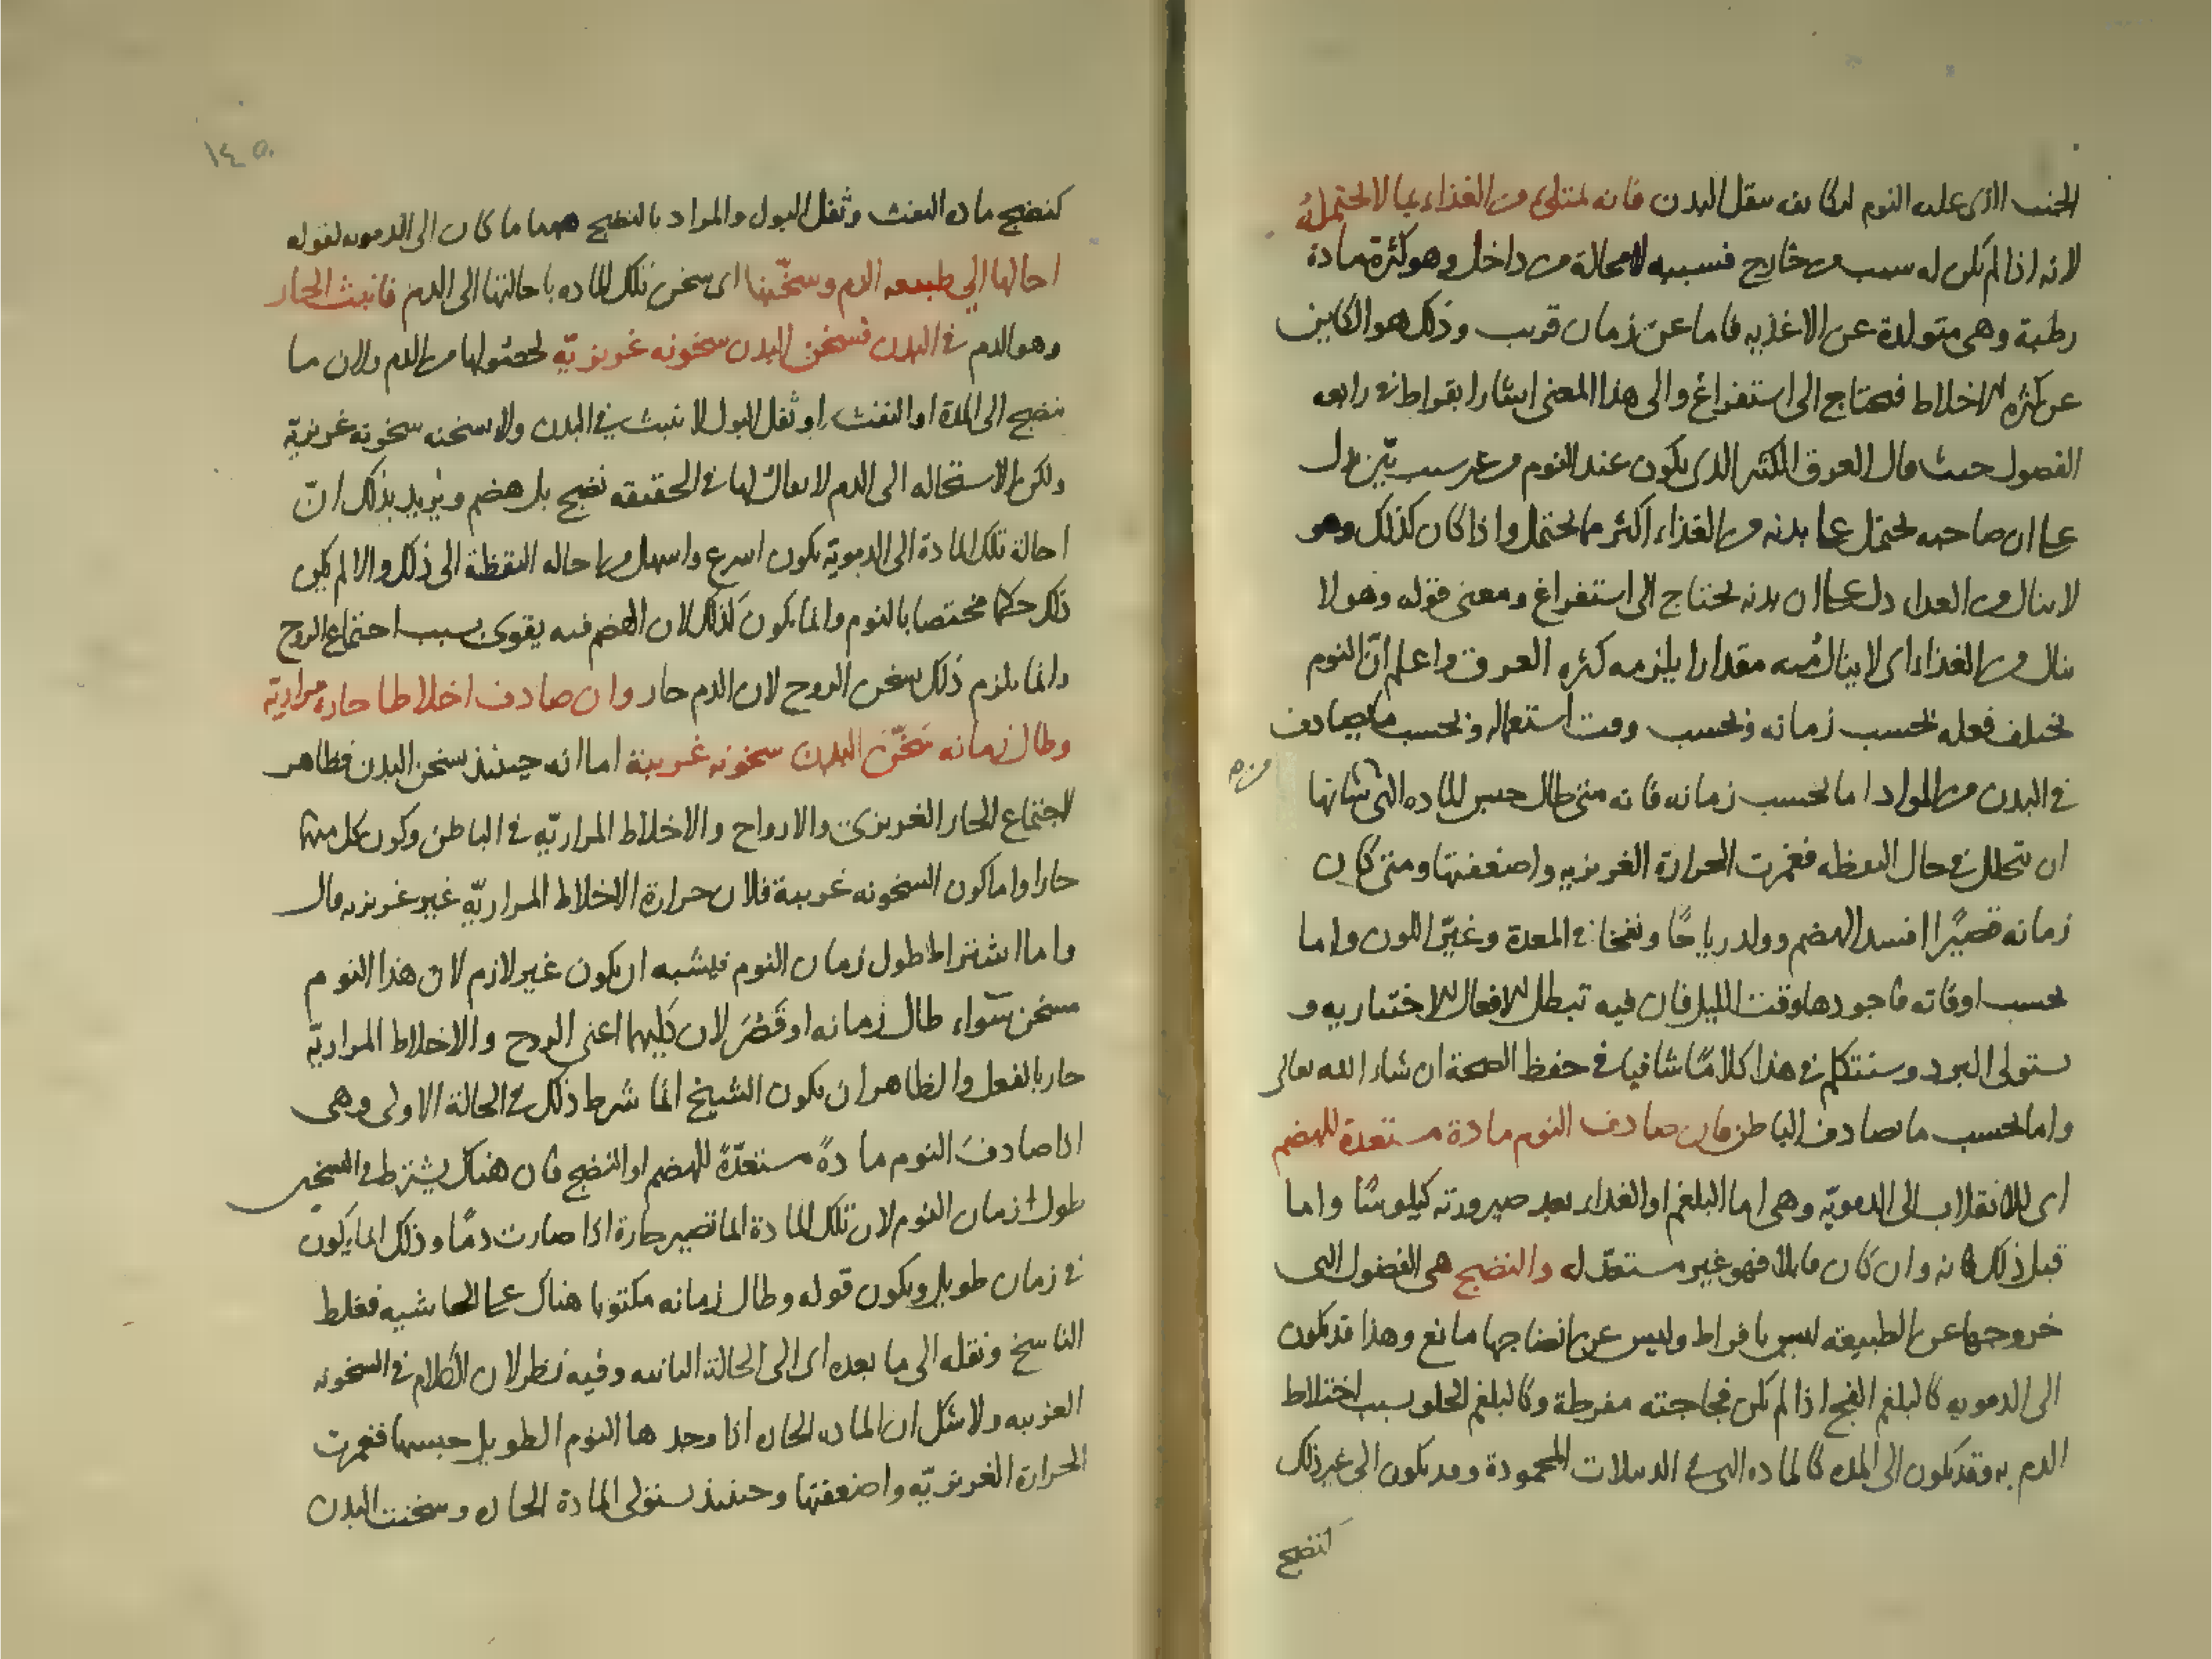 الجنب الذى عليه النوم لمكانه ينتقل البدن فانه لممتلئ من الغذاء بما لا يحتمله
لانه اذا لم يكن له سبب من خارج فسببه لا محالة من داخل وهو كثرة مادة
رطبة وهى متولدة عن الاغذيه فاما عن زمان قريب وذلك هو الكاين
عن كثره الاخلاط فيحتاج الى استفراغ والى هذا المعنى اشار ابقراط فى رابعه
الفصول حيث قال العرق الكثير الذى يكون عند النوم من غير سبب بيّن يدل
على ان صاحبه يحتمل على بدنه من الغذاء اكثر مما يحتمل واذا كان كذلك وهو
لا ينال من الغدا دل على ان بدنه يحتاج الى استفراغ ومعنى قوله وهو لا
ينال من الغذاء اى لا ينال منه مقدارا يلزمه كثره العرق واعلم انّ النوم
يختلف فعله بحسب زمانه وبحسب وقت استعماله وبحسب ما يصادف
فى البدن من المواد اما بحسب زمانه فانه متى طال حبس الماده التى شانها
ان تتحلل فى حال اليقظه فغمرت الحرارة الغريزيه واضعفتها ومتى كان
زمانه قصيرًا افسد الهضم وولد رياحًا ونفخا فى المعدة وغيّر اللون واما
بحسب اوقاته فاجودها وقت الليل فان فيه تبطل الافعال الاختياريه و
يستولى البرد وسنتكلم فى هذا كلامًا شافيا فى حفظ الصحة ان شاء الله تعالى
واما بحسب ما يصادف الباطن فان صادف النوم مادة مستعدة للهضم
اى للانقلاب الى الدمويّه وهى اما البلغم او الغداء بعد صيرورته كيلوسًا واما
قبل ذلك فانه وان كان قابلا فهو غير مستعدّ له والنضج هى الفضول التى
خروجها عن الطبيعه ليس بافراط وليس عن انضاجها مانع وهذا قد يكون
الى الدمويه كالبلغم الفج اذا لم تكن فجاجته مفرطة وكالبلغم الحلو بسبب اختلاط
الدم به وقد يكون الى المده كالماده التى فى الدبيلات المحمودة وقد يكون الى غير ذلك
كنضج
١٤٥
كنضج مادة النفث وثفل البول والمراد بالنضج ههنا ما كان الى الدمويه لقوله
احالها الى طبيعه الدم وسخّنها اى سخن تلك الماده باحالتها الى الدم فانبث الحار
وهو الدم فى البدن فسخن البدن سخونه غريزيّه لحصولها من الدم ولان ما
ينضج الى المدة او النفث او ثفل البول لا ينبث فى البدن ولا يسخنه سخونه غريزيّة
ولكن الاستحاله الى الدم لا يقال لها فى الحقيقه نضج بل هضم ويريد بذلك انّ
احالة تلك المادة الى الدمويّه يكون اسرع واسهل من احاله اليقظة الى ذلك والا لم يكن
ذلك حكما مختصا بالنوم وانما يكون كذلك لان الهضم فيه يقوى بسبب اجتماع الروح
وانما يلزم ذلك سخن الروح لان الدم حار وان صادف اخلاطا حارة مراريّة
وطال زمانه سخّن البدن سخونه غريبة اما انه حينئذ سخن البدن فظاهر
لاجتماع الحار الغريزى والارواح والاخلاط المراريّه فى الباطن وكون كل منها
حارا واما كون السخونه غريبة فلان حرارة الاخلاط المراريّه غير غريزيه قال
واما اشتراط طول زمان النوم فيشبه ان يكون غير لازم لان هذا النوم
مسخن سواء طال زمانه او قَصُر لان كليهما اعنى الروح والاخلاط المراريّه
حار بالفعل والظاهر ان يكون الشيخ انما شرط ذلك فى الحالة الاولى وهى
اذا صادفَ النوم مادةً مستعدّةً للهضم او النضج فان هناك يشترط فى التسخين
طول زمان النوم لان تلك المادة انما تصير حارة اذا صارت دمًا وذلك انما يكون
فى زمان طويل ويكون قوله وطال زمانه مكتوبا هناك على الحاشيه فغلط
الناسخ ونقله الى ما بعده اى الى الحالة الثانيه وفيه نظر لان الكلام فى السخونه
الغريبه ولا شك ان الماده الحاره اذا وجدها النوم الطويل حبسها فغمرت
الحرارة الغريزيّه واضعفتها وحينئذ تستولى المادة الحاره وسخنت البدن